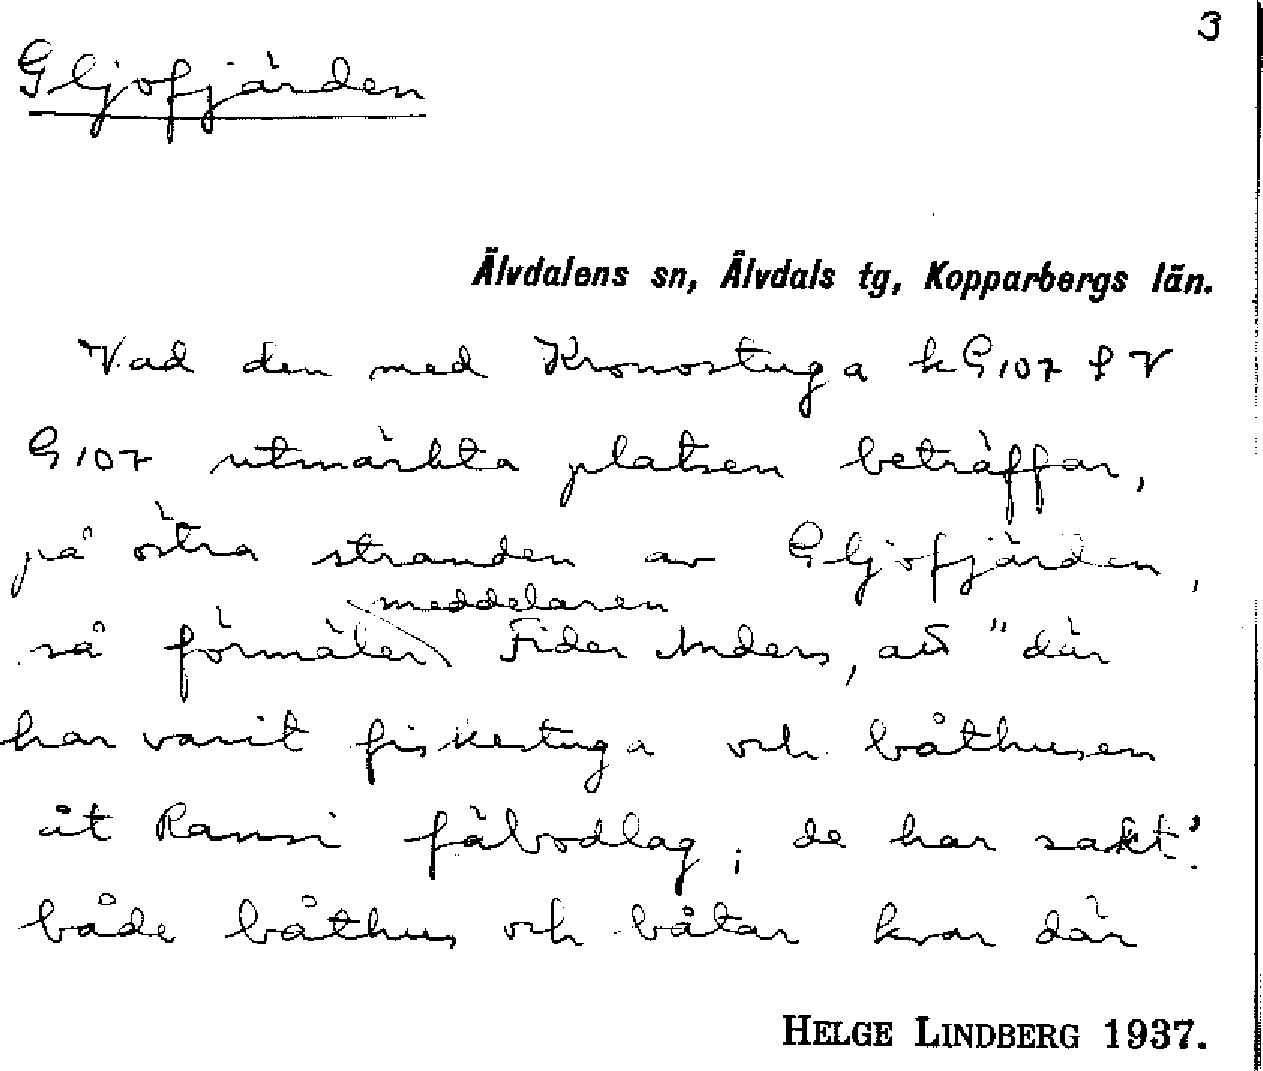 3
Gljofjärden
Älvdalens sn, Älvdals tg, Kopparbergs län.
Vad den med Kronostuga k G107 f V
G107 utmärkta platsen beträffar,
på östra stranden av Gljofjärden,
meddelaren
så förmäler Fider Anders, att "där
har varit fiskestuga och båthusen
åt Ransi fäbodlag; de har sakt:
både båthus och båtar kvar där
HELGE LINDBERG 1937.